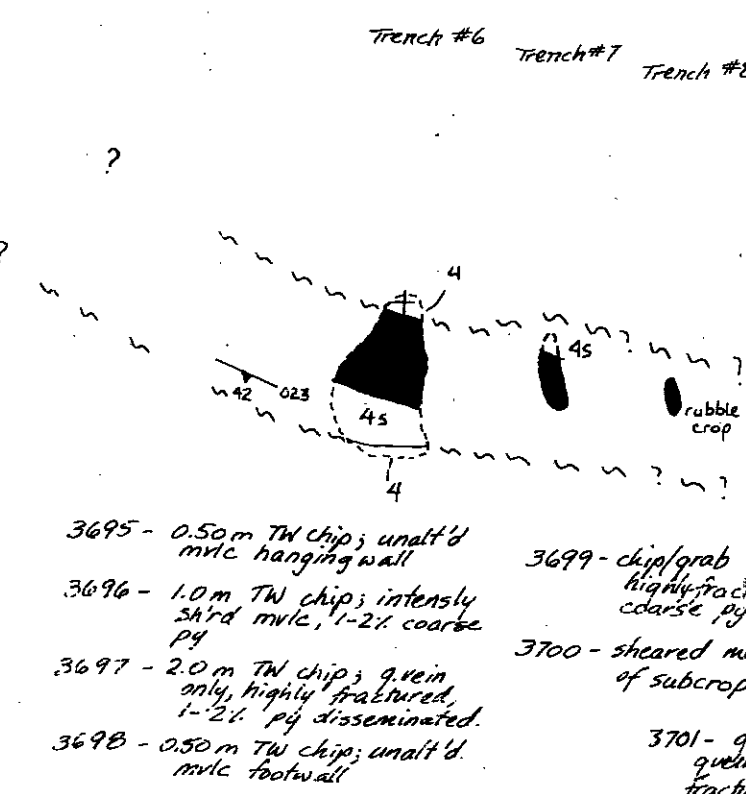 Trench #6
Trench #7
Trench #8
?
?
4
4s
?
?
42
023
4s
rubble
crop
?
?
4
3695 - 0.50m TW chip; unalt'd
mvlc hanging wall
3696 - 1.0m TW chip; intensly
sh'rd mvlc, 1-2% coarse
py
3697 - 2.0m TW chip; q.vein
only, highly fractured,
1-2% py disseminated.
3698 - 0.50m TW chip; unalt'd.
mvlc footwall
3699 - chip/grab
highly frac
coarse py
3700 - sheared m
of subcrop
3701 - q
fractu